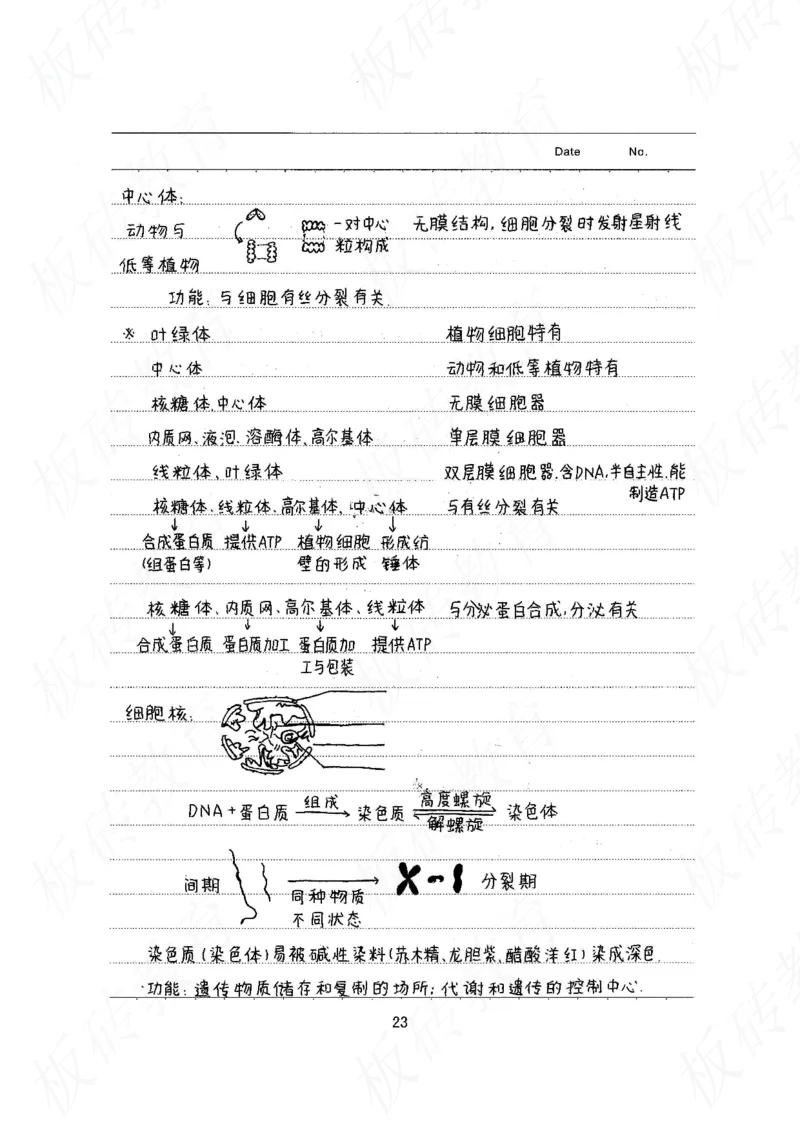 Date No.
中心体:
动物与 一对中心 无膜结构,细胞分裂时发射星射线
粒构成
低等植物
功能:与细胞有丝分裂有关.
※ 叶绿体 植物细胞特有
中心体 动物和低等植物特有
核糖体、中心体 无膜细胞器
内质网、液泡、溶酶体、高尔基体 单层膜细胞器
线粒体、叶绿体 双层膜细胞器.含DNA,半自主性,能
制造ATP
核糖体、线粒体、高尔基体、中心体 与有丝分裂有关
↓ ↓ ↓ ↓
合成蛋白质 提供ATP 植物细胞 形成纺
(组蛋白等) 壁的形成 锤体
核糖体、内质网、高尔基体、线粒体 与分泌蛋白合成,分泌有关
↓ ↓ ↓ ↓
合成蛋白质 蛋白质加工 蛋白质加 提供ATP
工与包装
细胞核:
DNA+蛋白质 组成 染色质 高度螺旋 染色体
解螺旋
间期 同种物质 分裂期
不同状态
染色质(染色体)易被碱性染料(苏木精、龙胆紫、醋酸洋红)染成深色.
·功能:遗传物质储存和复制的场所;代谢和遗传的控制中心.
23
板砖教育